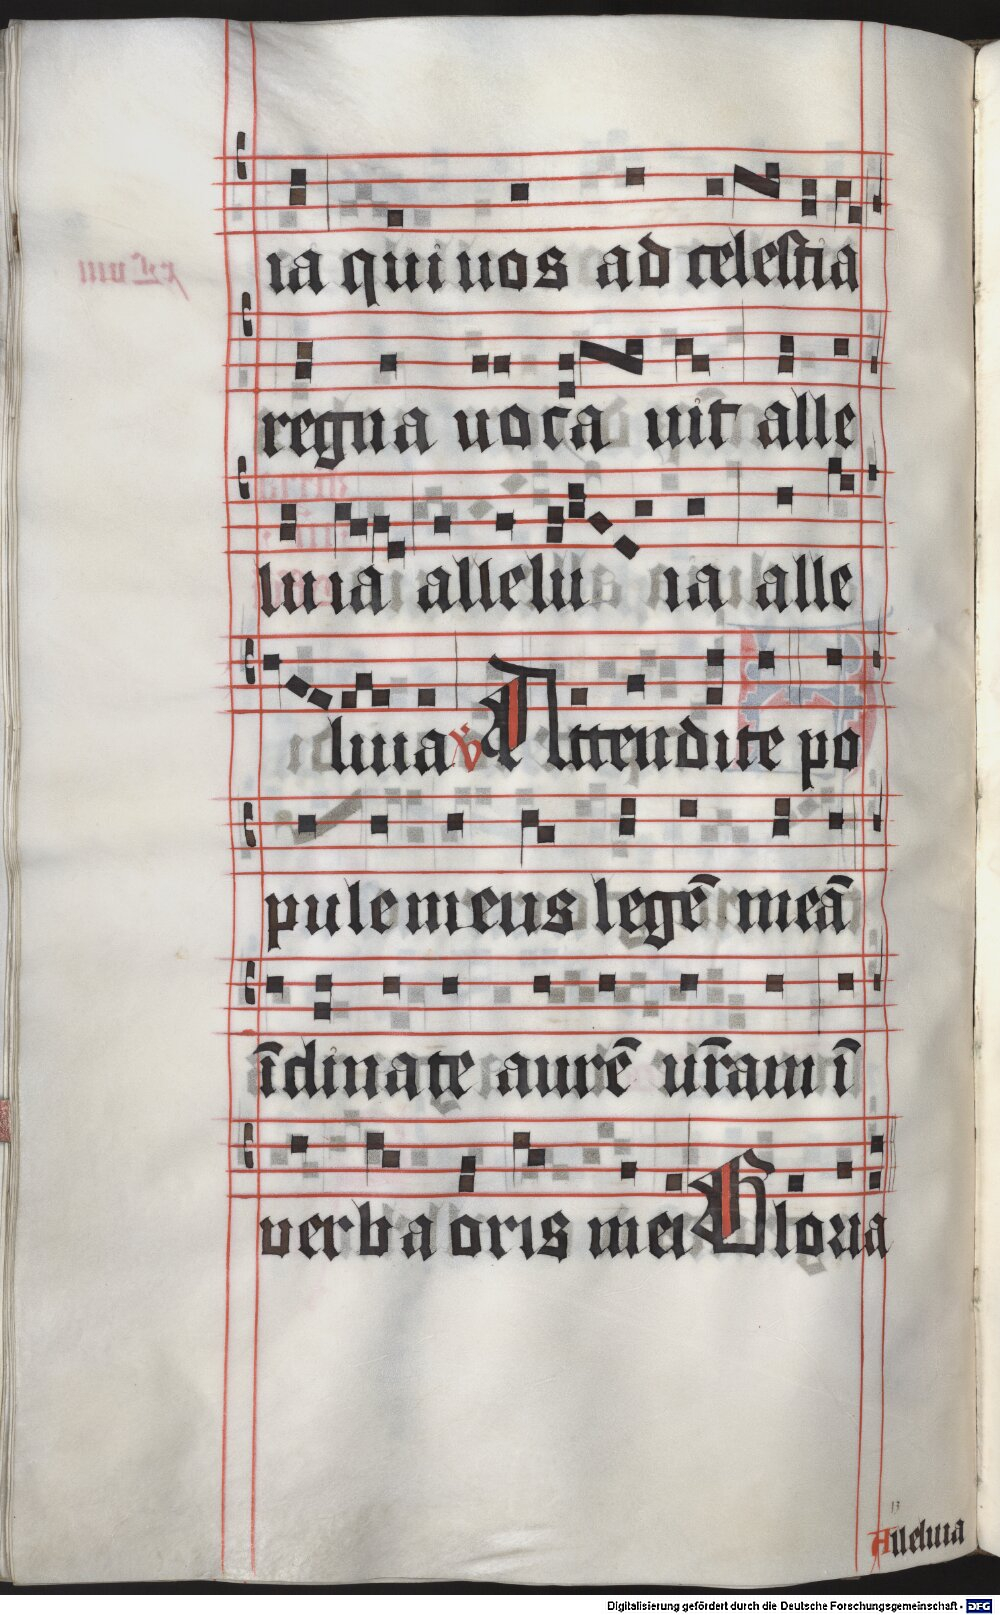 ia qui uos ad celestia
regna uoca uit alle
luia allelu ia alle
luia ℣ Attendite po
pule meus legē meā
īclinate aurē ur̄am ī
verba oris mei Gloria
13
Alleluia
Digitalisierung gefördert durch die Deutsche Forschungsgemeinschaft - DFG